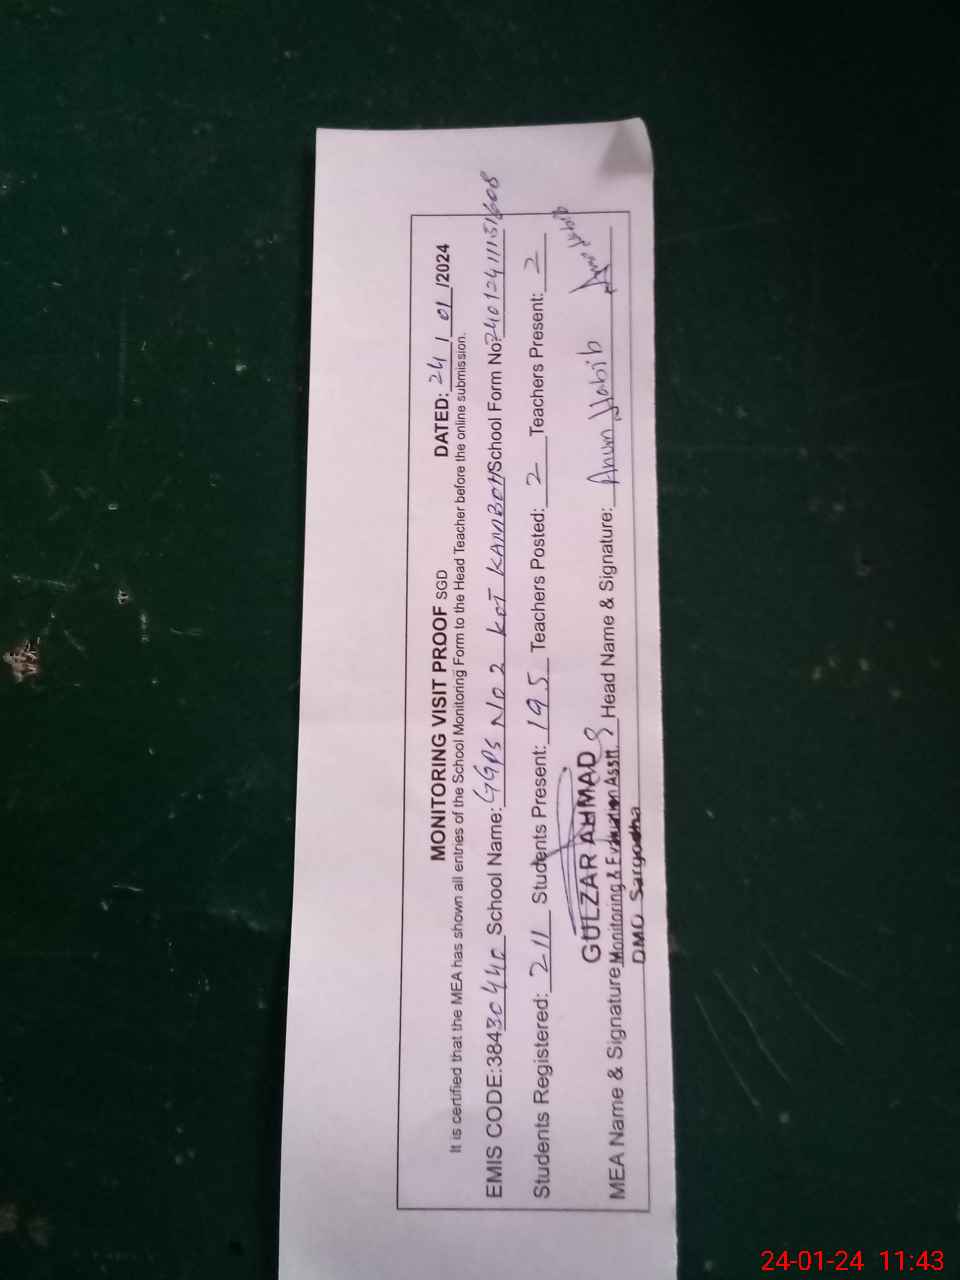 MONITORING VISIT PROOF SGD DATED: 24 / 01 /2024
It is certified that the MEA has shown all entries of the School Monitoring Form to the Head Teacher before the online submission.
EMIS CODE:38430440 School Name: GGPS No 2 KOT KAMBOH School Form No:
Students Registered: 211 Students Present: 195 Teachers Posted: 2 Teachers Present: 2
GULZAR AHMAD
MEA Name & Signature Monitoring & Evaluation Asstt. Head Name & Signature: Anum Habib
DMO Sargodha
24-01-24 11:43